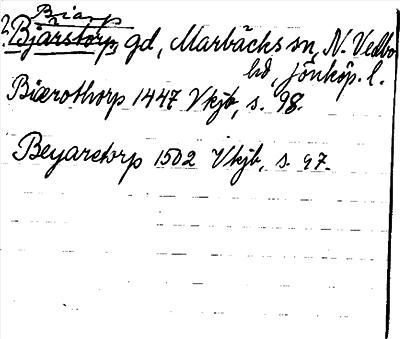 Biarp
? Bjärstorp gd, Marbäcks sn, N. Vedbo
hd, Jönköp. l.
Biærothorp 1447 Vkjb, s. 98.
Beyaretorp 1502 Vkjb, s. 97.